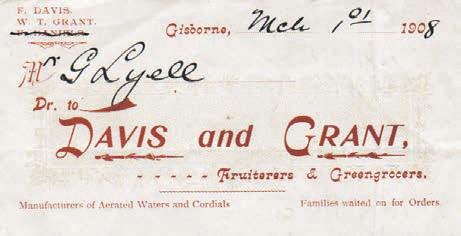 F. DAVIS.
W. T. GRANT.
F. DANIELS.
Gisborne, Mch 1st 1908
Mr G Lyell
Dr. to
DAVIS and GRANT,
Fruiterers & Greengrocers.
Manufacturers of Aerated Waters and Cordials
Families waited on for Orders